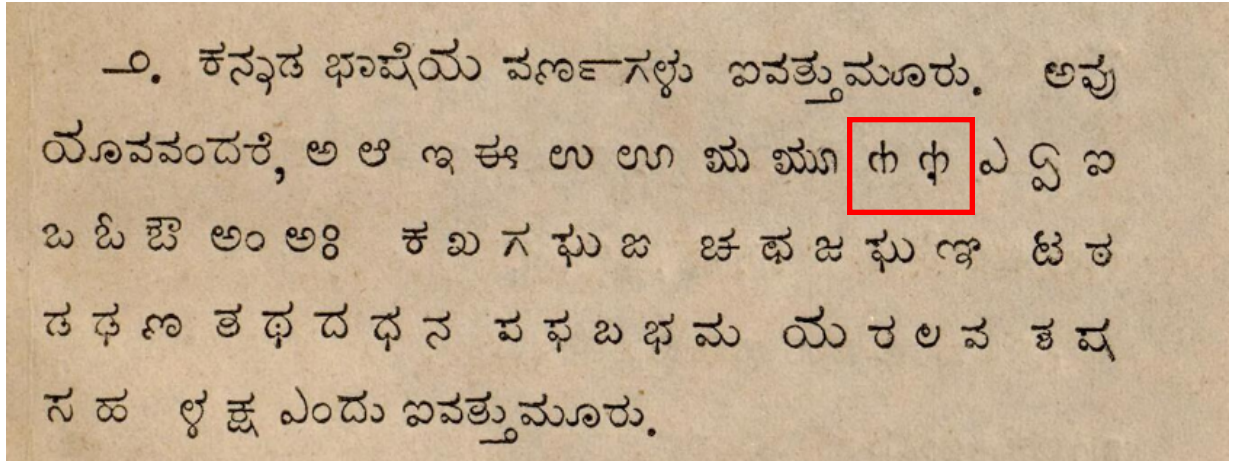 ೧. ಕನ್ನಡ ಭಾಷೆಯ ವರ್ಣಗಳು ಐವತ್ತುಮೂರು. ಅವು
ಯಾವವಂದರೆ, ಅ ಆ ಇ ಈ ಉ ಊ ಋ ೠ ಌ ೡ ಎ ಏ ಐ
ಒ ಓ ಔ ಅಂ ಅಃ ಕ ಖ ಗ ಘ ಙ ಚ ಛ ಜ ಝ ಞ ಟ ಠ
ಡ ಢ ಣ ತ ಥ ದ ಧ ನ ಪ ಫ ಬ ಭ ಮ ಯ ರ ಲ ವ ಶ ಷ
ಸ ಹ ಳ ಕ್ಷ ಎಂದು ಐವತ್ತುಮೂರು.